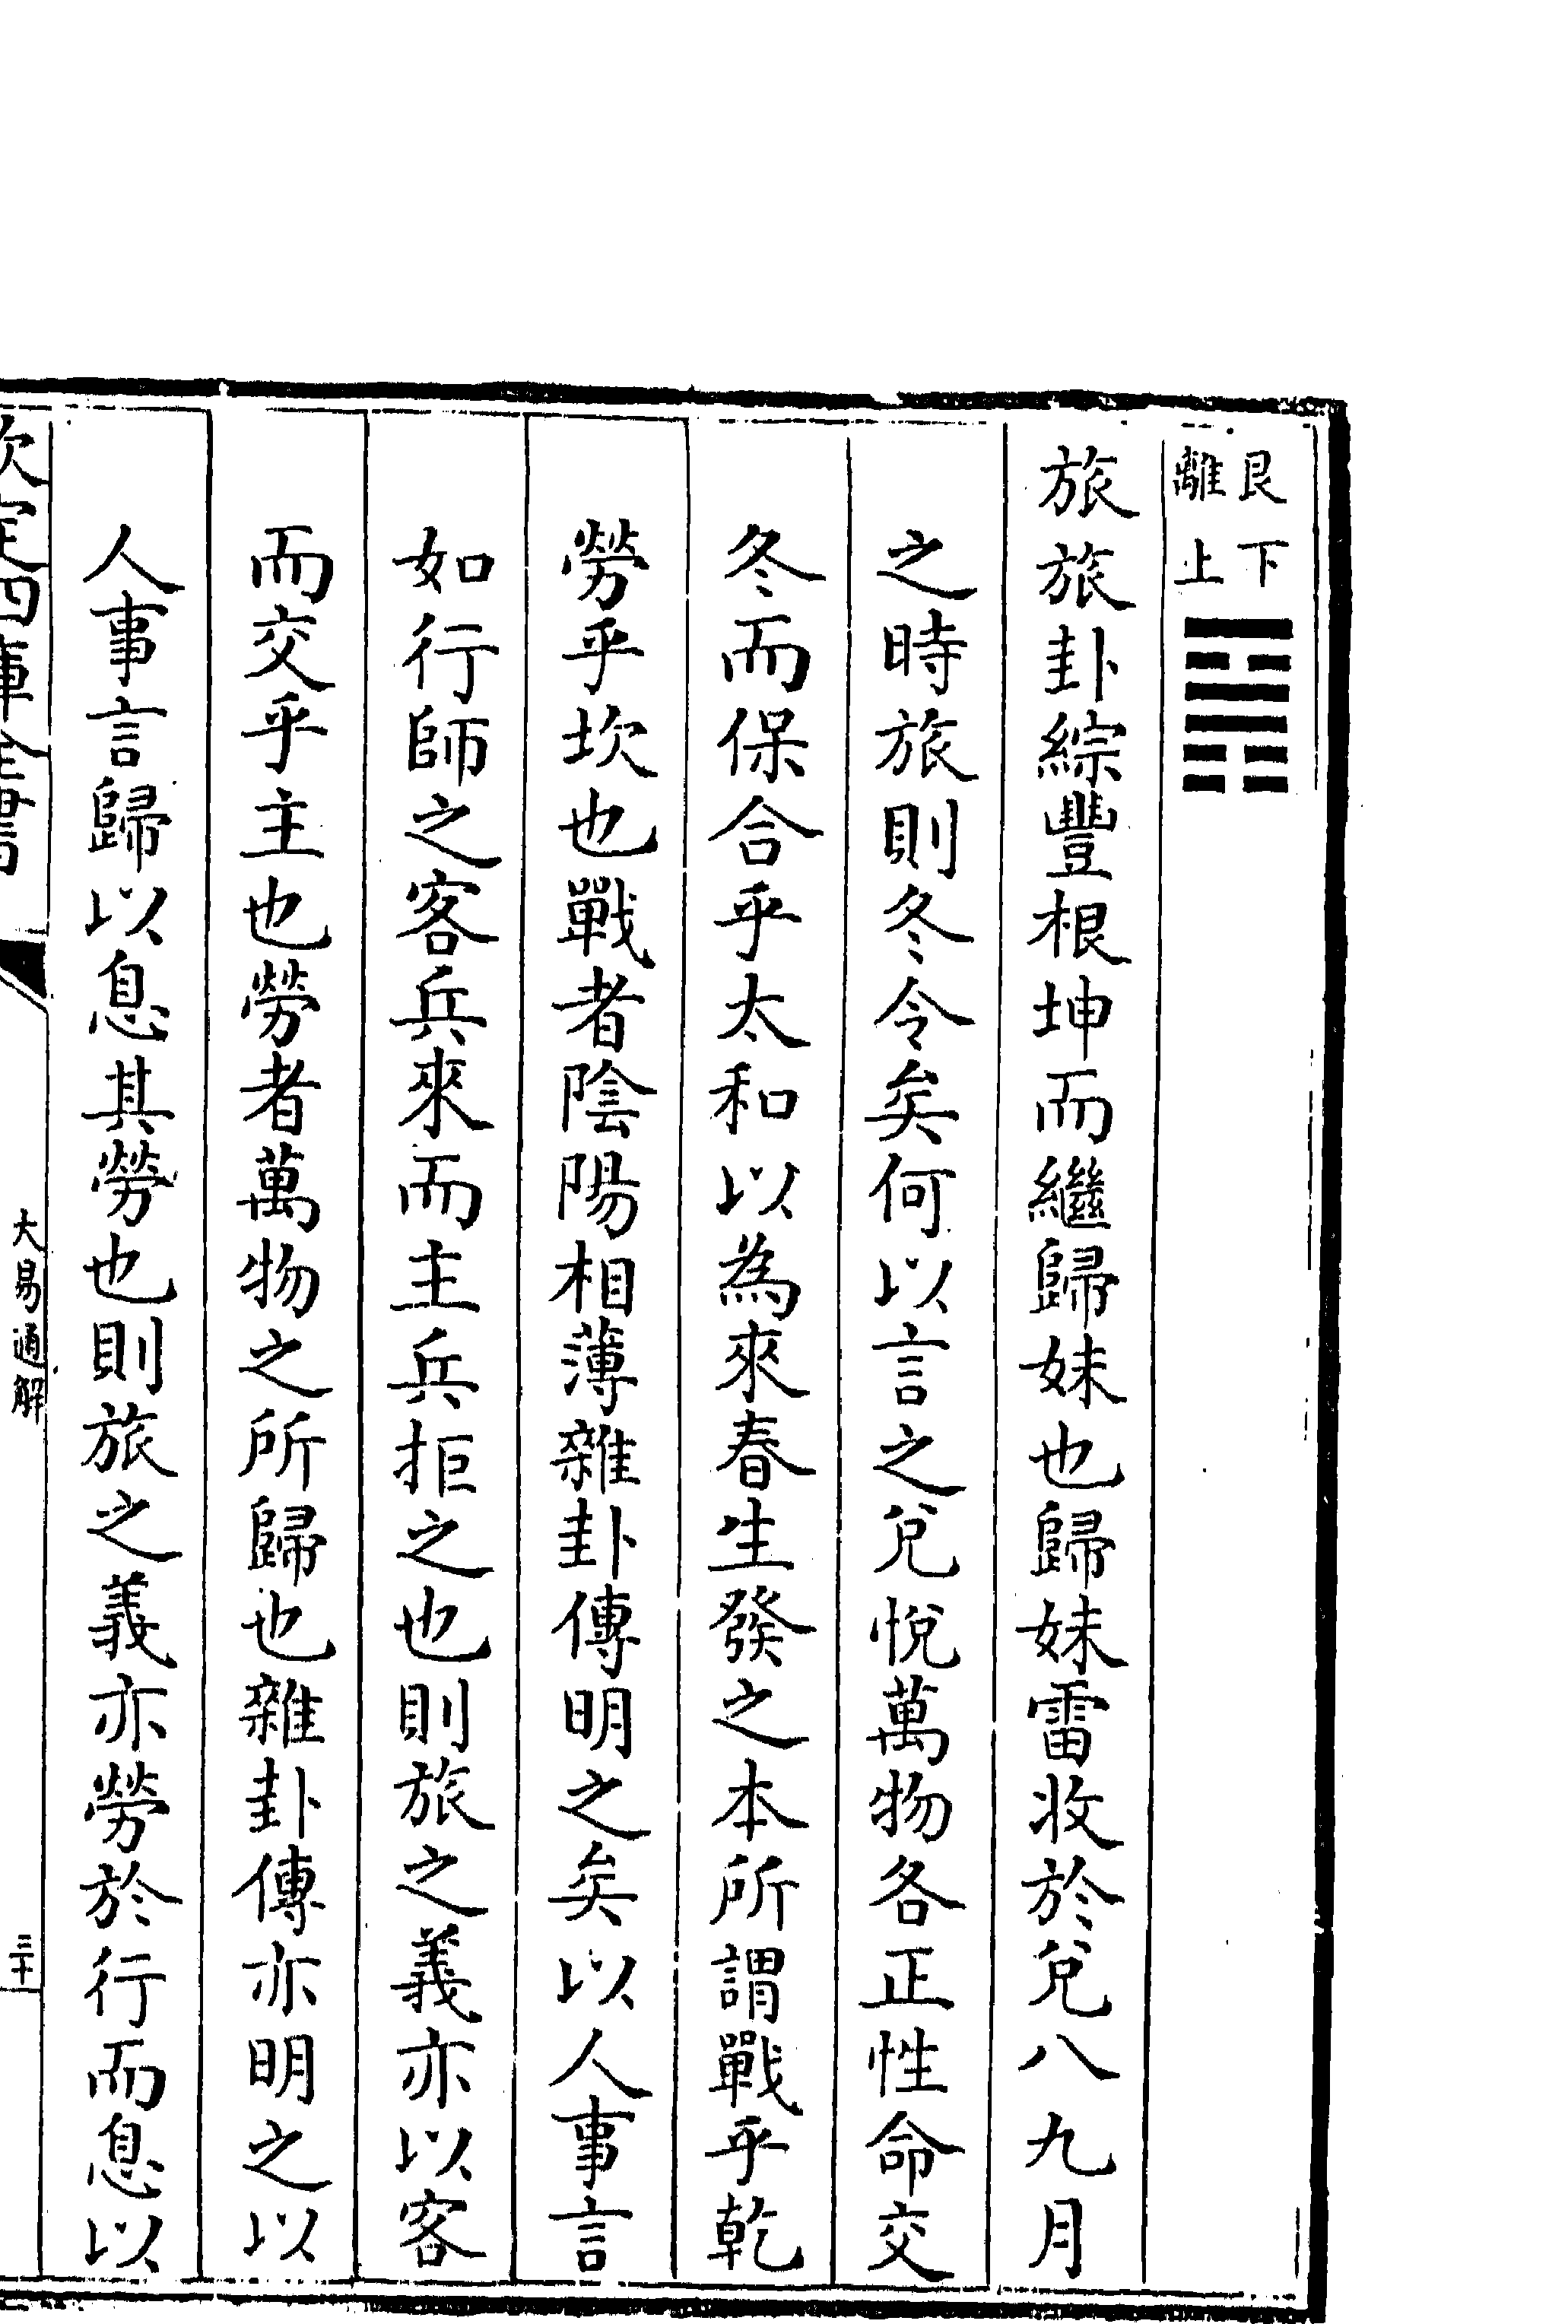 艮下
離上
旅旅卦綜豐根坤而繼歸妹也歸妹雷收於兌八九月
之時旅則冬令矣何以言之兌悅萬物各正性命交
冬而保合乎太和以為來春生發之本所謂戰乎乾
勞乎坎也戰者陰陽相薄雜卦傳明之矣以人事言
如行師之客兵來而主兵拒之也則旅之義亦以客
而交乎主也勞者萬物之所歸也雜卦傳亦明之以
人事言歸以息其勞也則旅之義亦勞於行而息以
欽定四庫全書
大易通解
三十